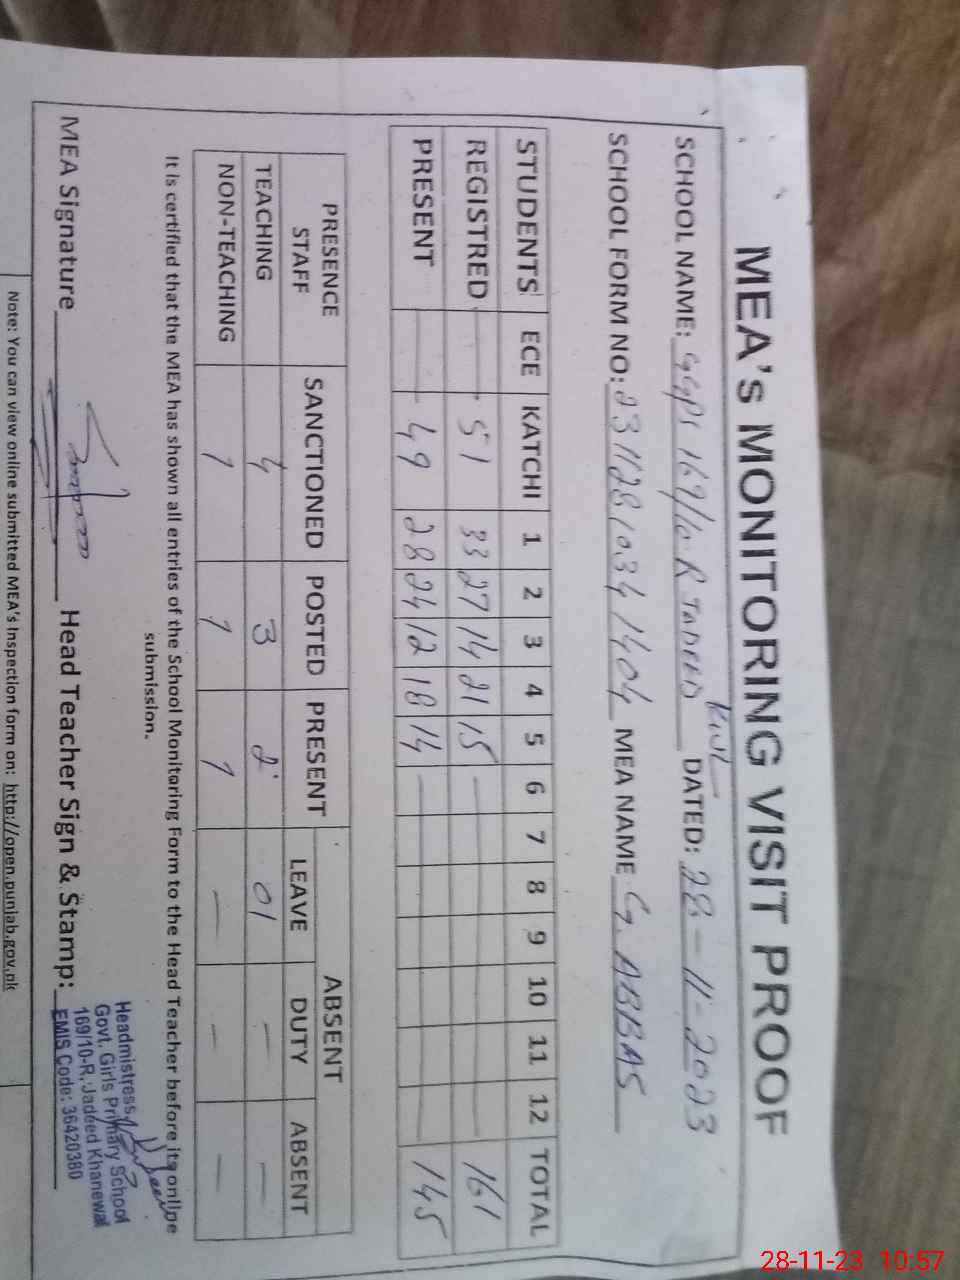 MEA's MONITORING VISIT PROOF
SCHOOL NAME: GGPS 169/10-R JADEED KWL DATED: 28-11-2023
SCHOOL FORM NO: 23112810341404 MEA NAME G. ABBAS
STUDENTS ECE KATCHI 1 2 3 4 5 6 7 8 9 10 11 12 TOTAL
REGISTRED — 51 33 27 14 21 15 — 161
PRESENT — 49 28 24 12 18 14 — 145
PRESENCE STAFF SANCTIONED POSTED PRESENT ABSENT
LEAVE DUTY ABSENT
TEACHING 4 3 2 01 — —
NON-TEACHING 1 1 1 — — —
It is certified that the MEA has shown all entries of the School Monitoring Form to the Head Teacher before its online
submission.
MEA Signature Head Teacher Sign & Stamp:
Headmistress
Govt. Girls Primary School
169/10-R, Jadeed Khanewal
EMIS Code: 36420380
Note: You can view online submitted MEA's Inspection form on: http://open.punjab.gov.pk
28-11-23 10:57